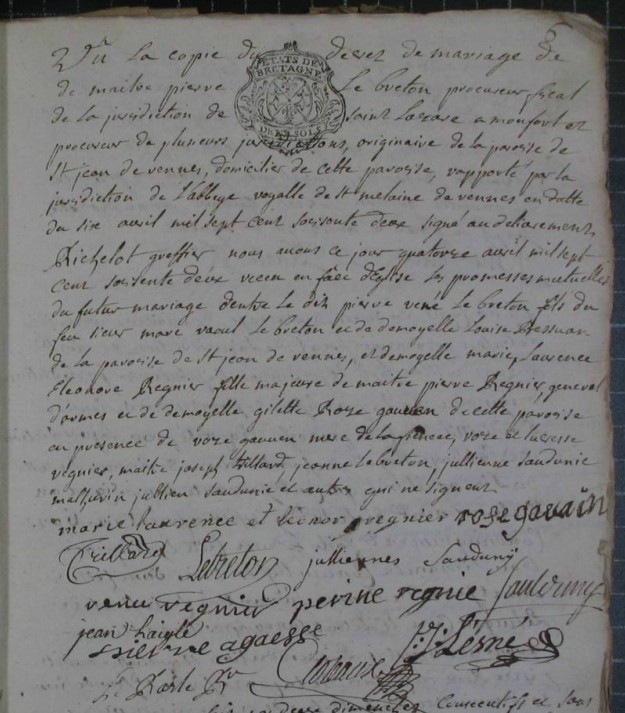 Vu la copie du decret de mariage de
de maitre pierre Le breton procureur fiscal
ETATS DE
BRETAGNE
DEUX SOLS
de la jurisdiction de saint Lazare a monfort et
procureur de plusieurs jurisdictions, originaire de la paroise de
st jean de vennes, domicilier de cette paroise, rapporté par la
jurisdiction de L'abbaye royalle de st melaine de rennes en datte
du six avril mil sept cent soissente deux signé au delivrement,
Richelot greffier nous avons ce jour quatorze avril mil sept
cent soissente deux receu en face d'Eglise les promesses mutuelles
du futur mariage d'entre Le dit pierre rené Le breton fils du
feu sieur marc raoul Le breton et de demoyelle Louise
de la paroise de st jean de vennes, et demoyelle marie, Laurence
Eleonore Regnier fille majeure de maitre pierre Regnier, general
d'armes et de demoyelle gilette Roze gauven de cette paroise
en presence de roze gauven mere de la roze et lucresse
regnier, maitre joseph trillard, jeanne Le breton, jullienne saudunie
mathurin jullien saudunie et autres qui ne signent
marie laurence et leonor regnier rose gavain
Trillard Lebreton julliennes Sauduny
renee regnier perine regnie
jean haigle
pierre agaesse Lesné
Chabaux
dimenches consecutifs et sans